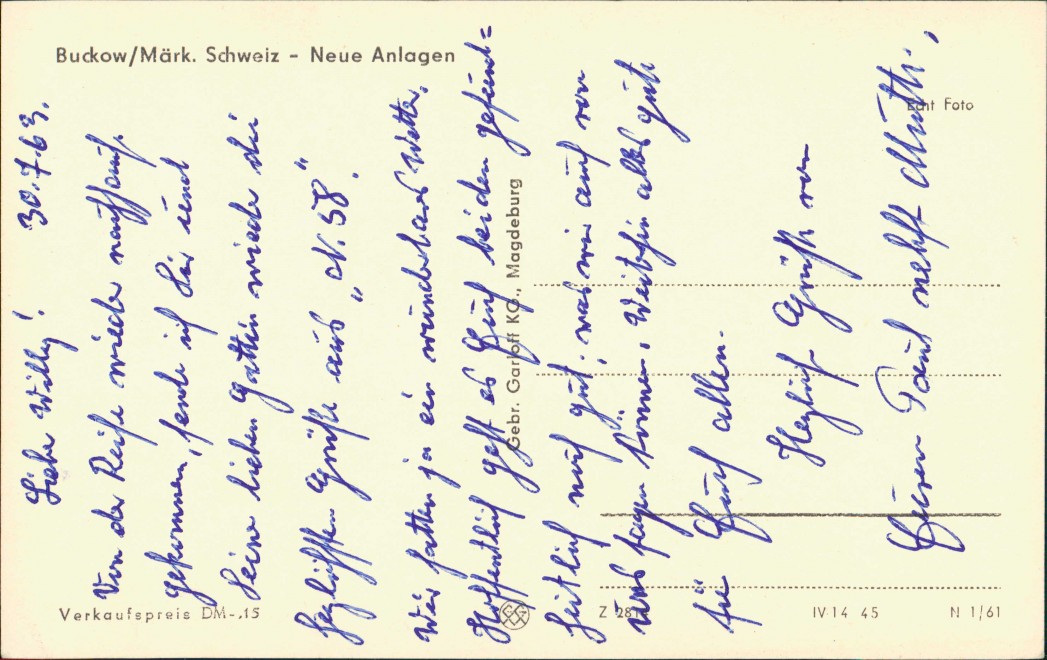 Buckow/Märk. Schweiz - Neue Anlagen
Echt Foto
Gebr. Garloff KG., Magdeburg
Verkaufspreis DM -.15
Z 281
IV 14 45
N 1/61
30.7.63.
Lieber Willy!
Von der Reise wieder nach Haus
gekommen, sende ich Dir und
Deiner lieben Gattin wieder die
herzlichsten Grüße aus „N. 58".
Wir hatten ja ein wunderbares Wetter.
Hoffentlich geht es Euch beiden gesund=
heitlich auch gut, was wir auch von
uns sagen können. Weiterhin alles Gute
für Euch allen.
Herzlich Grüßt von
Euren Paul nebst Mutti,